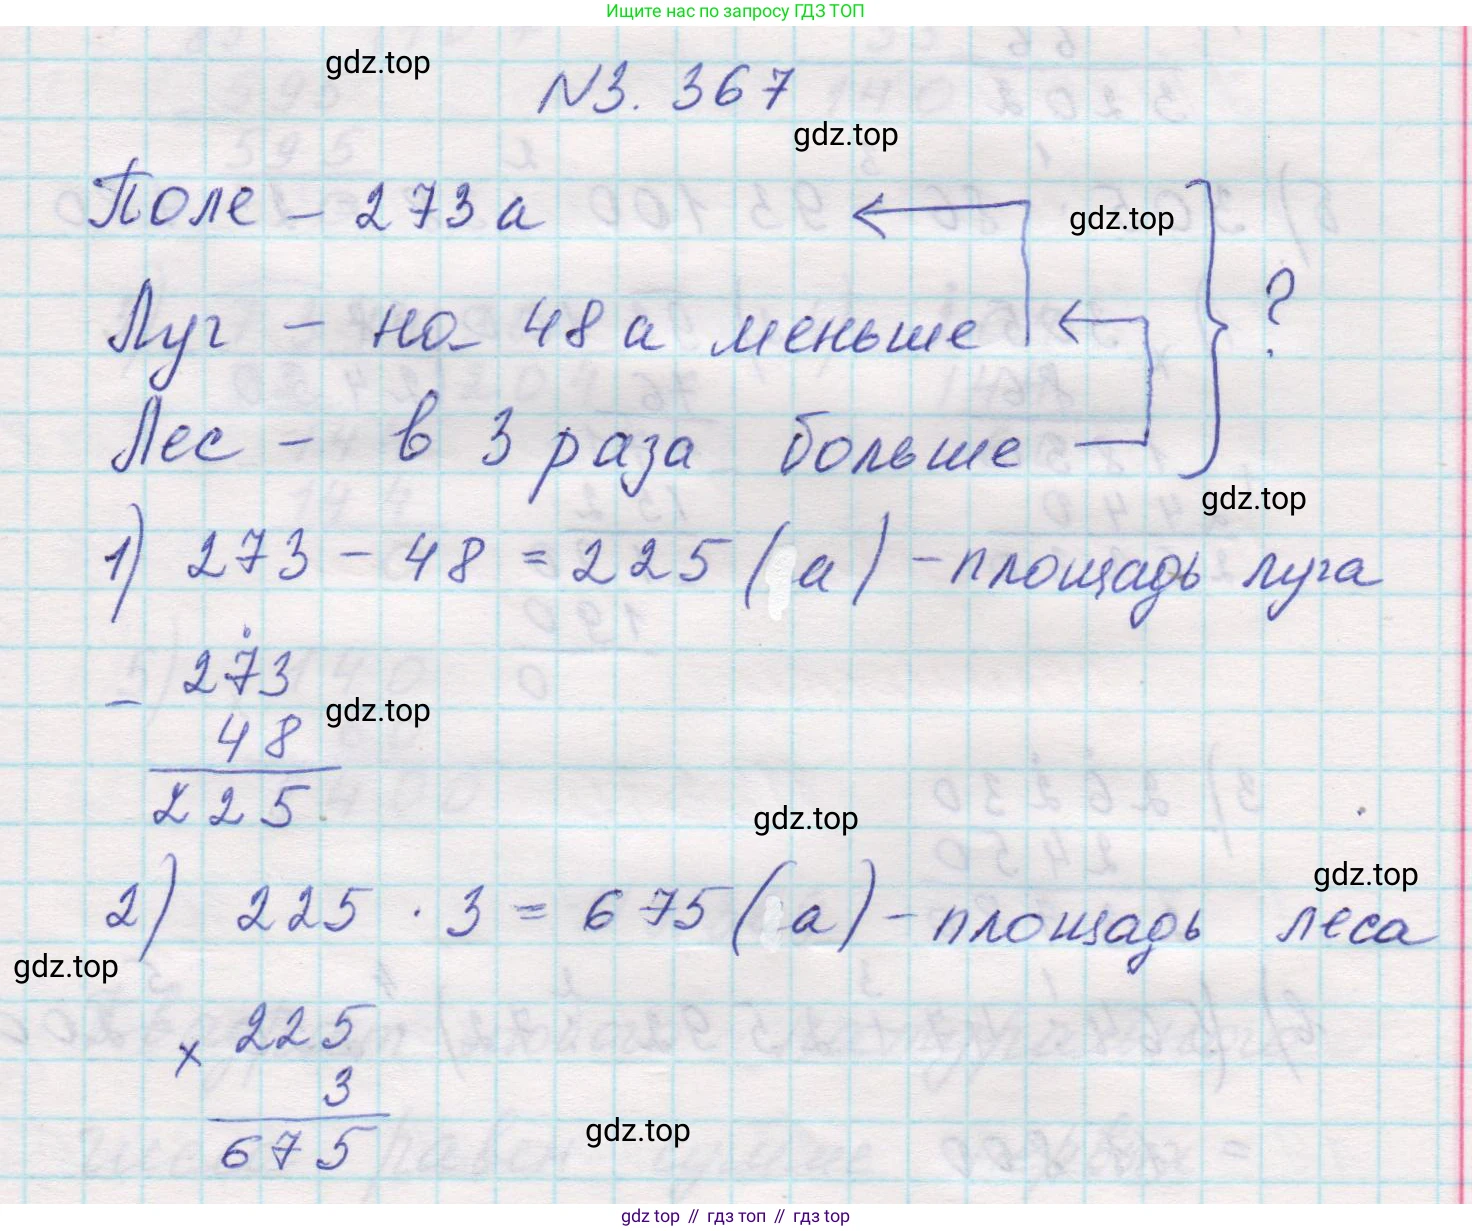 Ищите нас по запросу ГДЗ ТОП
gdz.top
№3.367
gdz.top
Поле – 273 а
gdz.top
Луг – на 48 а меньше
?
Лес – в 3 раза больше
gdz.top
1) 273 – 48 = 225 (а) – площадь луга
273
– 48
gdz.top
225
gdz.top
gdz.top
2) 225 · 3 = 675 (а) – площадь леса
gdz.top
225
× 3
675
gdz.top
gdz top // гдз топ // gdz top